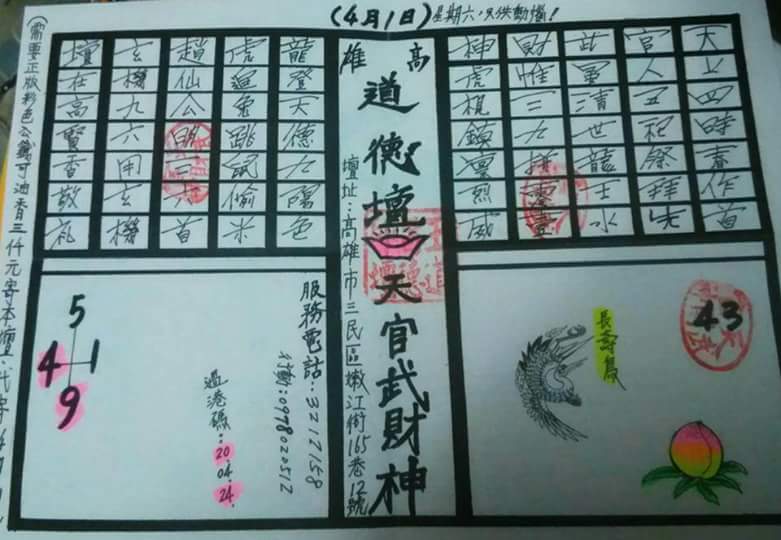 (4月1日)星期六,只供動惱!
天上四時春作首
官人五祀祭拜先
世軍清世龍王水
財惟三九機靈童
神虎棍鎮壇烈威
高雄
道德壇天官武財神
壇址:高雄市三民區嫩江街165巷12號
龍登天德九陽色
虎過兔跳鼠偷米
趙仙公明三六首
玄機九六用玄機
壇在高賢香敬礼
43
長壽鳥
服務電話:3217158
行動:0978020512
過港碼:20.04.24.
5
4 1
9
(需要正版彩色公籤可油香三仟元寄本壇